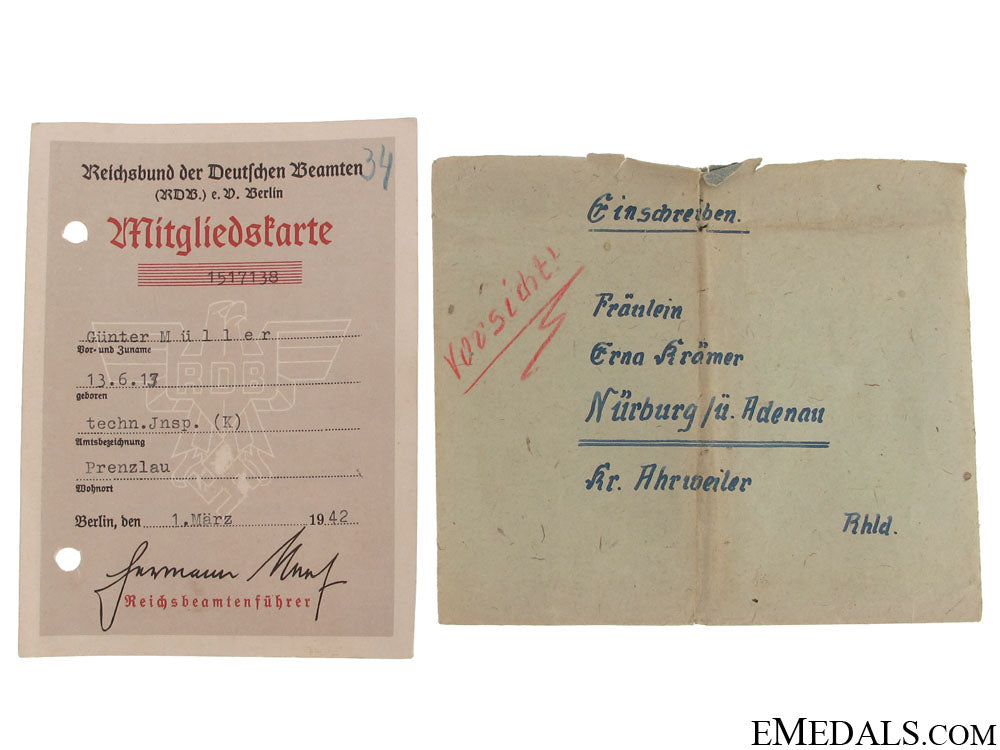 Reichsbund der Deutschen Beamten
34
(RDB.) e. V. Berlin
Mitgliedskarte
1517138
Günter Müller
Vor- und Zuname
RDB
13.6.13
geboren
techn.Jnsp. (K)
Amtsbezeichnung
Prenzlau
Wohnort
Berlin, den 1. März 1942
Hermann Neef
Reichsbeamtenführer
Einschreiben.
Vorsicht!
Fräulein
Erna Krämer
Nürburg /ü. Adenau
Kr. Ahrweiler
Rhld.
EMEDALS.COM